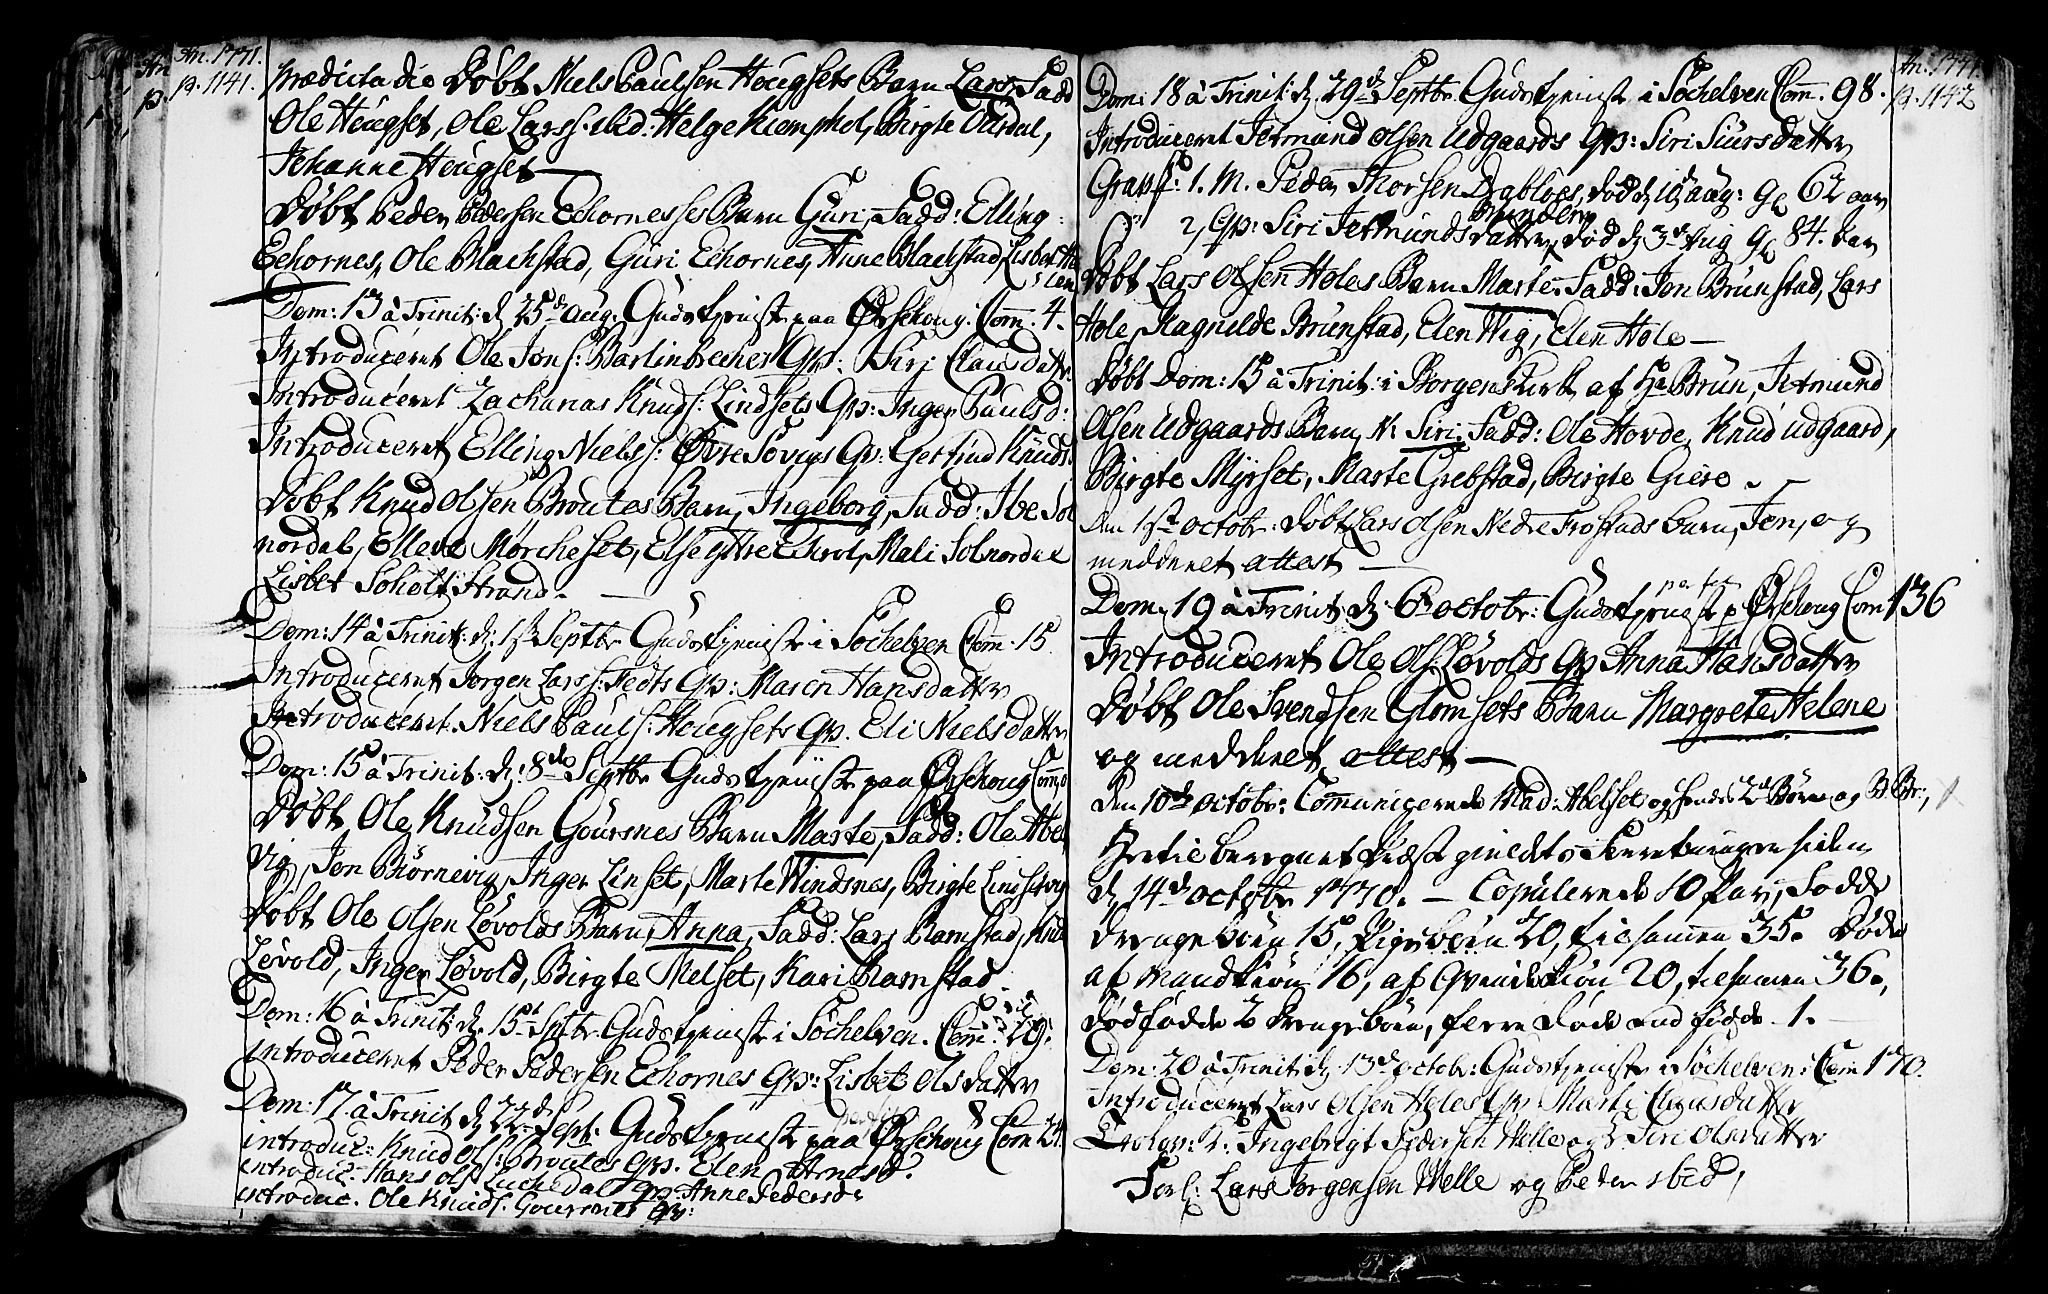 An. 1771.
p. 1141.
Prædicta die Døbt Niels Paulsen Hougsets Barn Lars, Fadd
Ole Hougset, Ole Larss. ibid: Helge Kiemphol, Birgte Olisdal,
Johanne Hougset
Døbt Peder Pedersen Echornesses Barn Guri, Fadd: Elling
Echornes, Ole Blachstad, Guri Echornes, Anne Blachstad, Lisbet
Dom: 13 à Trinit: d. 25de aug. Gudstjeniste paa Ørschoug. Com. 4.
Introduceret Ole Jons: Qv: Siri Clausdatter
Introduceret Zacharias Knuds: Lindsets Qv: Inger Paulsd:
Introduceret Elling Niels: Øvre Qv: Gertrud Knuds
Døbt Knud Olsen Broutes Barn, Ingeborg, Fadd: Sol
nordal, Ellevd Mørcheset, Else Mali Solnordal
Lisbet Soholt Strand.
Dom: 14 à Trinit: d: 1st Septbr Gudstjeniste i Søchelven Com. 15.
Introduceret Jorgen Larss: Qv: Maren Hansdatter
Introduceret. Niels Pauls: Hougsets Qv. Eli Nielsdatter
Dom: 15 à Trinit: d: 8de Septbr Gudstjeniste paa Ørschoug Com
Døbt Ole Knudsen Goursnes Barn Marte, Fadd: Ole Abel
vig, Jon Børnevig, Inger Linset, Marte Windsnes, Birgte Lindsetvig
Døbt Ole Olsen Løvolds Barn, Anna, Fadd: Lars Ramstad, Knud
Løvold, Inger Løvold, Birgte Melset, Kari Ramstad
Dom: 16 à Trinit: d. 15d Septbr Gudstjeniste i Søchelven. Com: 29.
introduceret Peder Pedersen Echornes Qv: Lisbet Olsdatter
Dom: 17 à Trinit d: 22de Sept: Gudstjeniste paa Ørschoug Com 24.
introduc: Knud Ols: Broutes Qv. Elen Arnesd.
introduc: Hans Ols Luchedal Qv: Anne Pedersd:
introduc. Ole Knuds. Goursnes Qv:
An. 1771.
p. 1142
Dom: 18 à Trinit: d. 29de Septbr. Gudstjeniste i Søchelven Com. 98.
Introduceret Jetmund Olsen Udgaards Qv: Siri Siursdatter
Grafs: 1. M. Peder Thorsen Drabløes, død d. 18 aug: gl 62 aar
2, Qv: Siri Jetmundsdatter, død d 3de Aug gl 84. aar
Døbt Lars Olsen Holes Barn Marte. Fadd: Jon Brunstad, Lars
Hole, Ragnilde Brunstad, Elen Wig, Elen Hole
Døbt Dom: 15 à Trinit: i Borgens Kirke af Hr Brun, Jetmund
Olsen Udgaards Barn, N. Siri, Fadd: Ole Hovde, Knud Udgaard,
Birgte Myrset, Marte Grebstad, Birgte Giere
den 1ste octobr: Døbt Lars Olsen Nedre Frøstads Barn, Jon, og
meddeelt attest
Dom. 19 à Trinit: d. 6te octobr: Gudstjeniste p Ørschoug Com 136
Introduceret Ole Ols Løvolds Qv Anna Hansdatter
Døbt Ole Svendsen Glomsets Barn Margrete Helene
og meddeelt attest
Den 10de octobr: Comunicerede Mad: Abelset og hendes 2de Børn og
siden
d. 14de octobr 1770. Copulerede 10 Par, Fødde
drengebørn 15, Pigebørn 20, tilsamen 35. Døde
af Mandkiøn 16, af Qvindekiøn 20, tilsamen 36.,
Dødfødde 2 Drengebørn, flere døde end fødde 1.
Dom: 20 à Trinit: d. 13de octobr: Gudstjeniste i Søchelven: Com 170.
Introduceret Lars Olsen Holes Qv Marte Clausdatter
Trolov: K. Ingebrigt Pedersen Welle og P. Siri Olsdatter
Forl: Lars Jorgensen Welle og Peder ibid,